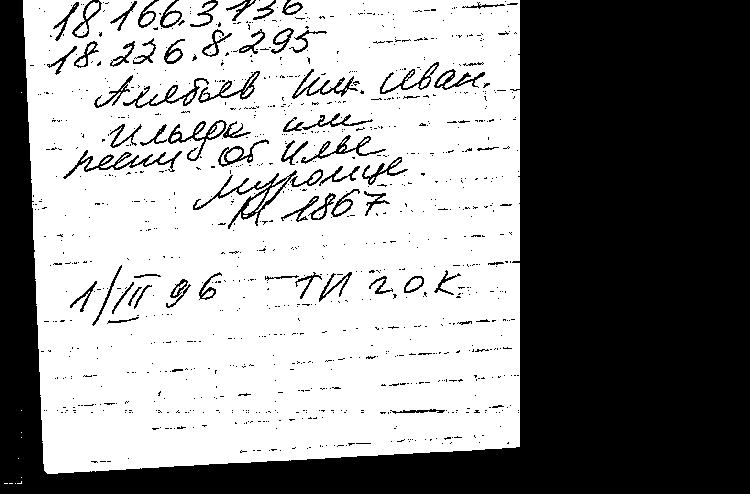 18.166.3.136
18.226.8.295
Алябьев Ник. Иван.
Ильяда или
песни об Илье
Муромце.
М 1867
1/III 96 ТИ г.О.К.